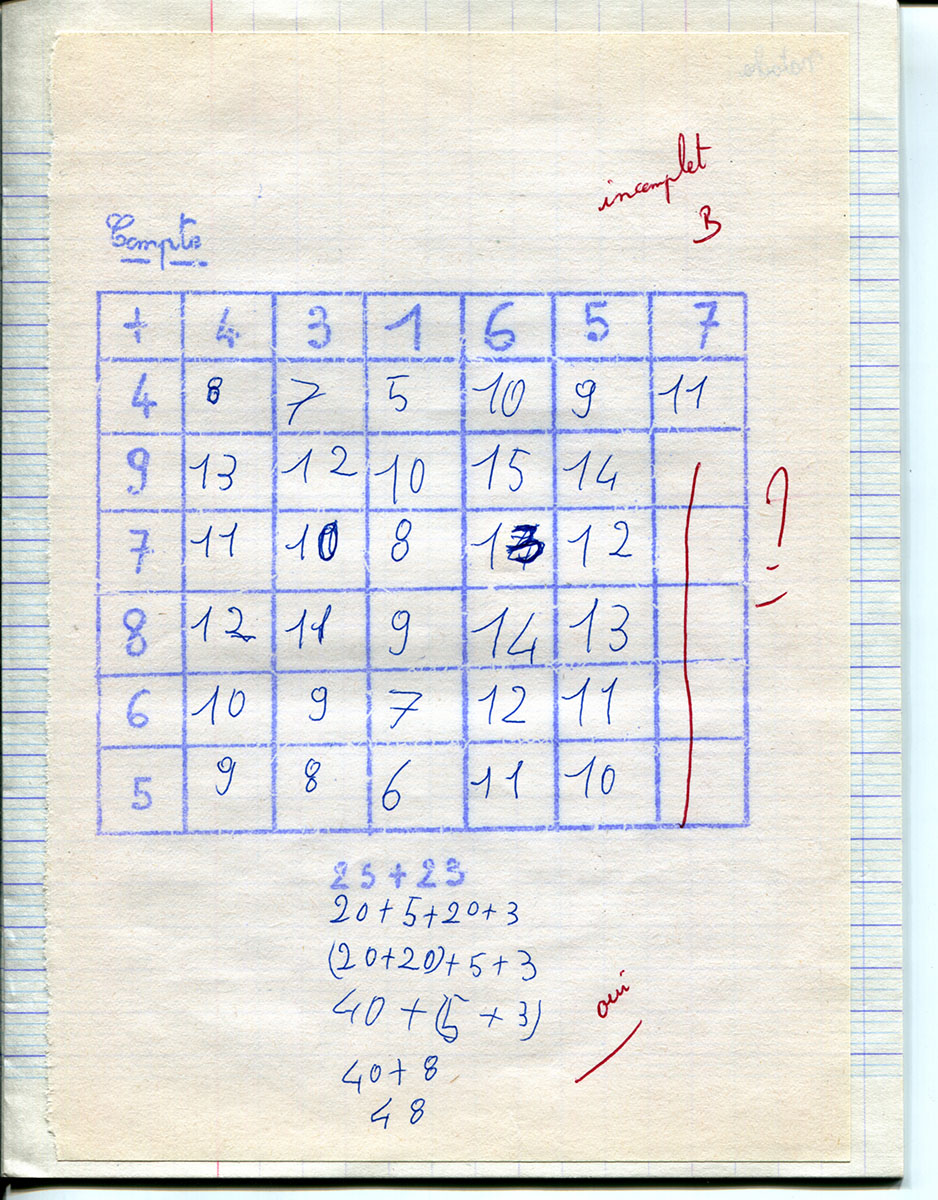 incomplet
B
Compte
+ 4 3 1 6 5 7
4 8 7 5 10 9 11
9 13 12 10 15 14
7 11 10 8 13 12
8 12 11 9 14 13
6 10 9 7 12 11
5 9 8 6 11 10
?
25+23
20+5+20+3
(20+20)+5+3
40+(5+3)
oui
40+8
48